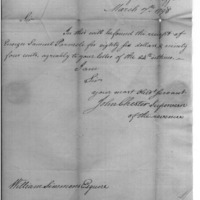 March 9th 1798
Sir
In this will be found the receipt of
Ensign Samuel Parsons for eighty six dollars & ninety
four cents, agreeably to your letter of the 24th ultimo.
I am
Sir
your most Obdt Servant
John Chester Supervisor
of the revenue
William Simmons Esquire